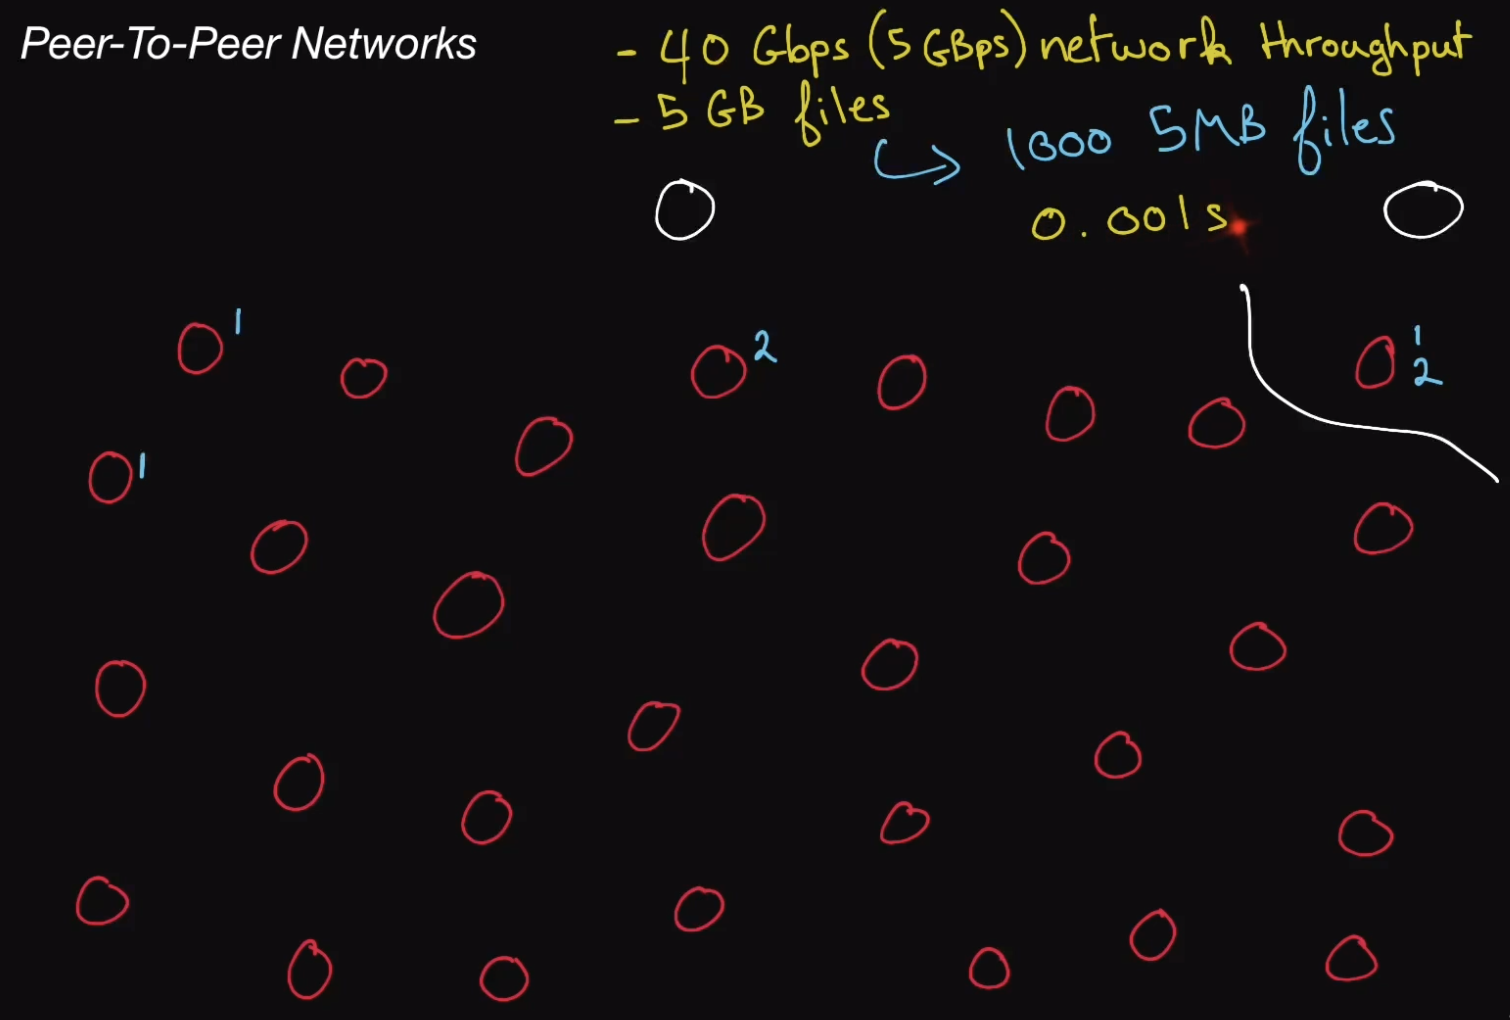 Peer-To-Peer Networks
- 40 Gbps (5 GBps) network throughput
- 5 GB files
1000 5MB files
0.001s
1
2
1
2
1